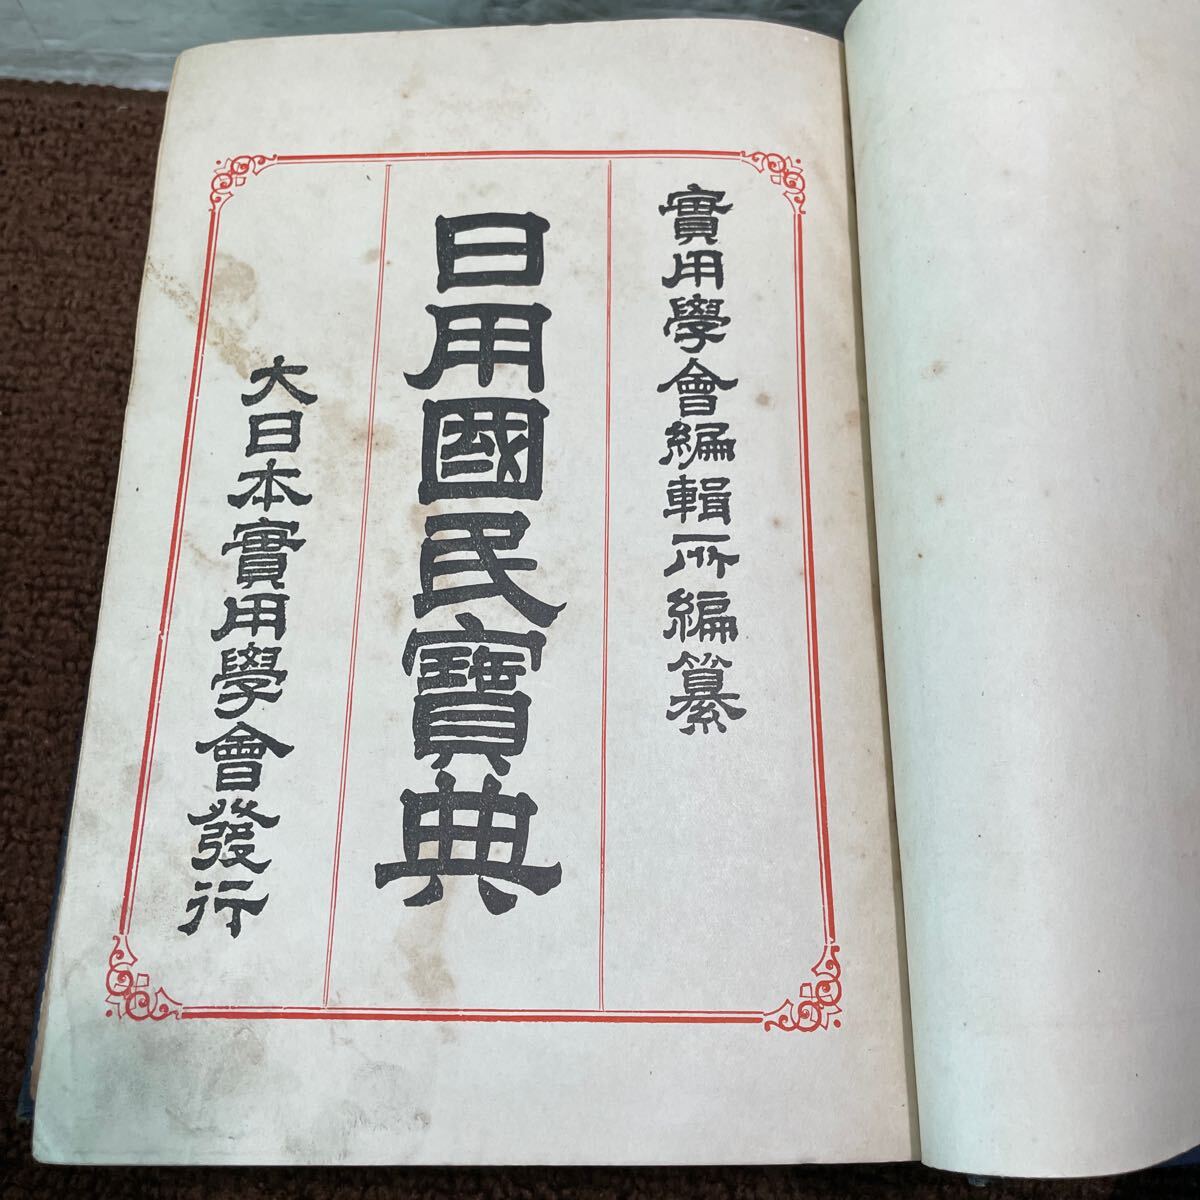 實用學會編輯所編纂
日用國民寶典
大日本實用學會發行